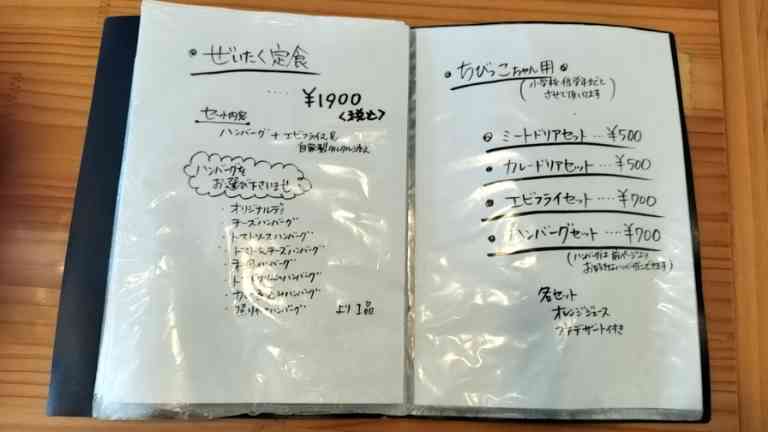 ぜいたく定食
‥‥ ¥1900
<税込>
セット内容
ハンバーグ + エビフライ
自家製タルタル添え
ハンバーグを
お選び下さいませ
・オリジナル
・チーズハンバーグ
・トマトソースハンバーグ
・トマトチーズハンバーグ
ハンバーグ
ハンバーグ
ハンバーグ
ハンバーグ より1品
ちびっこちゃん用
(小学校低学年までと
させて頂いてます)
ミートドリアセット‥‥¥500
カレードリアセット‥‥¥500
エビフライセット‥‥¥700
ハンバーグセット‥‥¥700
(ハンバーグは前ページより
お好きな
各セット
オレンジジュース
プチデザート付き